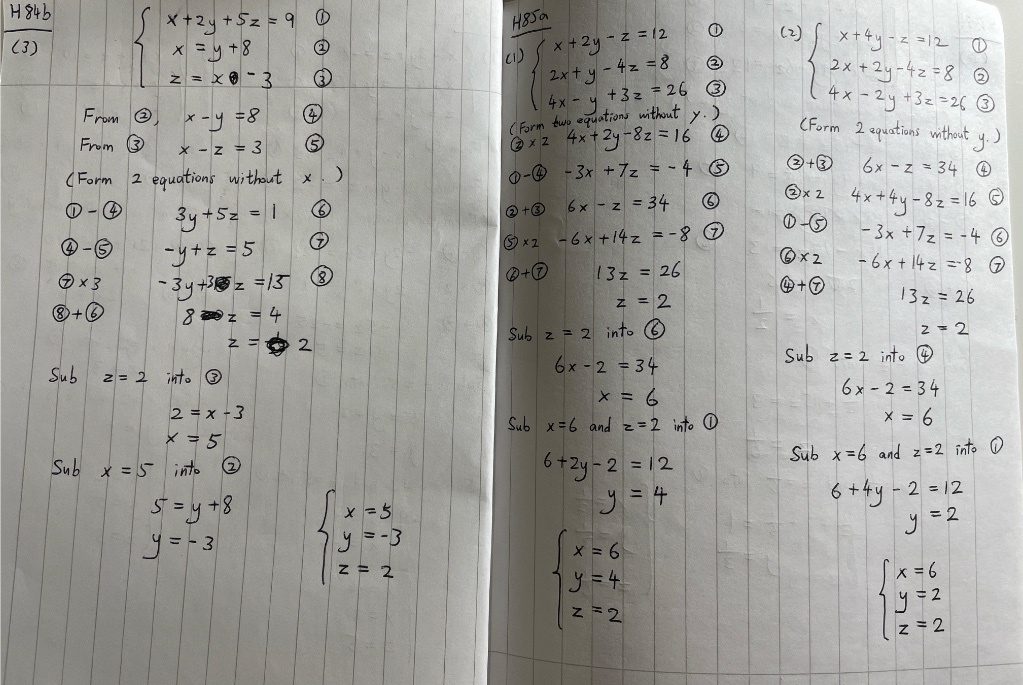 H84b
(3)
x + 2y + 5z = 9 ①
x = y + 8 ②
z = x - 3 ③
From ②, x - y = 8 ④
From ③ x - z = 3 ⑤
(Form 2 equations without x.)
① - ④ 3y + 5z = 1 ⑥
④ - ⑤ -y + z = 5 ⑦
⑦ × 3 -3y + 3z = 15 ⑧
⑧ + ⑥ 8z = 4
z = 2
Sub z = 2 into ③
2 = x - 3
x = 5
Sub x = 5 into ②
5 = y + 8
y = -3
x = 5
y = -3
z = 2
H85a
(1) x + 2y - z = 12 ①
2x + y - 4z = 8 ②
4x - y + 3z = 26 ③
(Form two equations without y.)
② × 2 4x + 2y - 8z = 16 ④
① - ④ -3x + 7z = -4 ⑤
② + ③ 6x - z = 34 ⑥
⑤ × 2 -6x + 14z = -8 ⑦
⑥ + ⑦ 13z = 26
z = 2
Sub z = 2 into ⑥
6x - 2 = 34
x = 6
Sub x = 6 and z = 2 into ①
6 + 2y - 2 = 12
y = 4
x = 6
y = 4
z = 2
(2) x + 4y - z = 12 ①
2x + 2y - 4z = 8 ②
4x - 2y + 3z = 26 ③
(Form 2 equations without y.)
② + ③ 6x - z = 34 ④
② × 2 4x + 4y - 8z = 16 ⑤
① - ⑤ -3x + 7z = -4 ⑥
⑥ × 2 -6x + 14z = -8 ⑦
④ + ⑦ 13z = 26
z = 2
Sub z = 2 into ④
6x - 2 = 34
x = 6
Sub x = 6 and z = 2 into ①
6 + 4y - 2 = 12
y = 2
x = 6
y = 2
z = 2